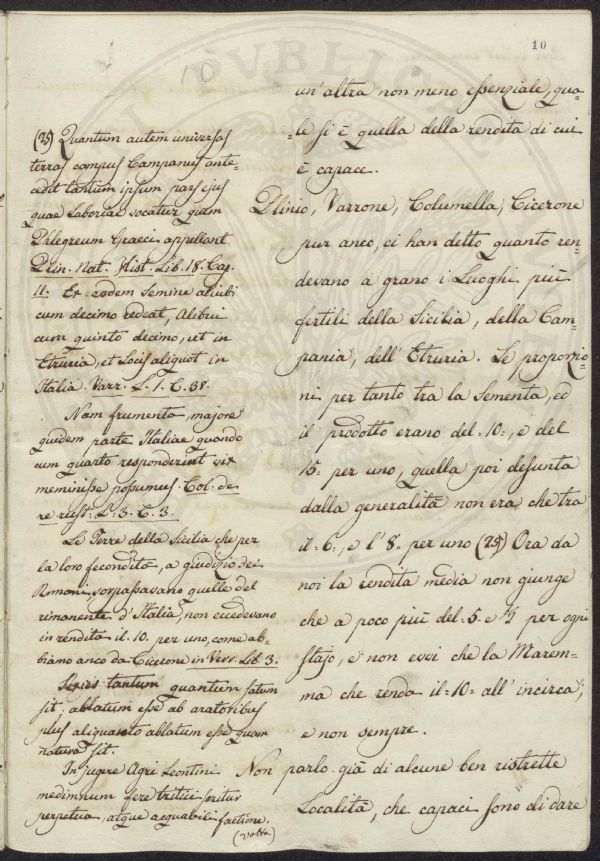 10
10
PVBLICA
un'altra non meno essenziale, qua=
=le si è quella della rendita di cui
è capace.
Plinio, Varrone, Columella, Cicerone
pur anco, ci han detto quanto ren-
devano a grano i Luoghi più
fertili della Sicilia, della Cam-
pania, dell'Etruria. Le proporzio-
ni per tanto tra la Sementa, ed
il prodotto erano del =10=, e del
15= per uno, quella poi desunta
dalla generalità non era che tra
il =6=, e l'8= per uno (25) Ora da
noi la rendita media non giunge
che a poco più del =5= e ½ per ogni
stajo, e non evvi che la Marem-
ma che renda il =10= all'incirca,
e non sempre.
Non parlo già di alcune ben ristrette
Località, che capaci sono di dare
(25) Quantum autem universas
terras campus Campanus ante-
cedit tantum ipsum pars ejus
quae Laboriae vocatur quem
Phlegreum Graeci appellant.
Plin. Nat. Hist. Lib. 18. Cap.
11. Ex eodem semine aliubi
cum decimo redeat, alibui
cum quinto decimo, ut in
Etruria, et Locis aliquot in
Italia. Varr. L. 1. C. 38.
Nam frumenta, majore
quidem parte Italiae quando
cum quarto responderint vix
meminisse possumus. Col. de
re rust. L. 3. C. 3.
Le Terre della Sicilia che per
la loro fecondità, a giudizio dei
Romani, sorpassavano quelle del
rimanente d'Italia, non eccedevano
in rendita il 10. per uno, come ab-
biamo anco da Cicerone in Verr. Lib. 3.
tantum quantum satum
sit, ablatum esse ab aratoribus
plus aliquanto ablatum esse quam
natum sit.
In jugere Agri Leontini
medimnum fere tritici seritur
perpetua, atque aequabili factione.
(volta)